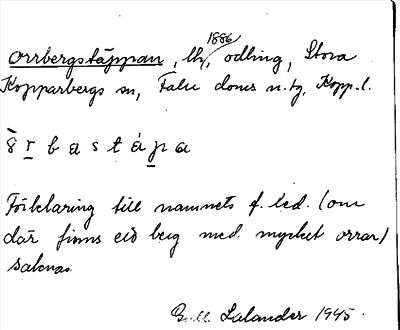 Orrbergstäppan, lh, 1886 odling, Stora
Kopparbergs sn, Falu doms n. tg, Kopp. l.
r b a s t á p a
Förklaring till namnets f. led. (om
där finns ett berg med mycket orrar)
saknas.
Lalander 1945.